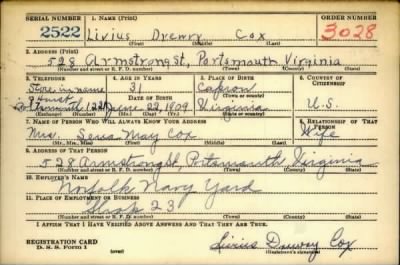 SERIAL NUMBER 1. NAME (Print) ORDER NUMBER
2522 Livius Drewry Cox 3028
(First) (Middle) (Last)
2. ADDRESS (Print)
528 Armstrong St, Portsmouth Virginia
(Number and street or R. F. D. number) (Town) (County) (State)
3. TELEPHONE 4. AGE IN YEARS 5. PLACE OF BIRTH 6. COUNTRY OF CITIZENSHIP
Store in name 31 Capron
DATE OF BIRTH
Portsmouth 1221 June 22, 1909 Virginia U.S.
(Exchange) (Number) (Mo.) (Day) (Yr.) (State or country)
7. NAME OF PERSON WHO WILL ALWAYS KNOW YOUR ADDRESS 8. RELATIONSHIP OF THAT PERSON
Mrs. May Cox Wife
(Mr., Mrs., Miss) (First) (Middle) (Last)
9. ADDRESS OF THAT PERSON
528 Armstrong St, Portsmouth, Virginia
(Number and street or R. F. D. number) (Town) (County) (State)
10. EMPLOYER'S NAME
Norfolk Navy Yard
11. PLACE OF EMPLOYMENT OR BUSINESS
Shop 23
(Number and street or R. F. D. number) (Town) (County) (State)
I AFFIRM THAT I HAVE VERIFIED ABOVE ANSWERS AND THAT THEY ARE TRUE.
REGISTRATION CARD
D. S. S. Form 1 (over) Livius Drewry Cox
(Registrant's signature)